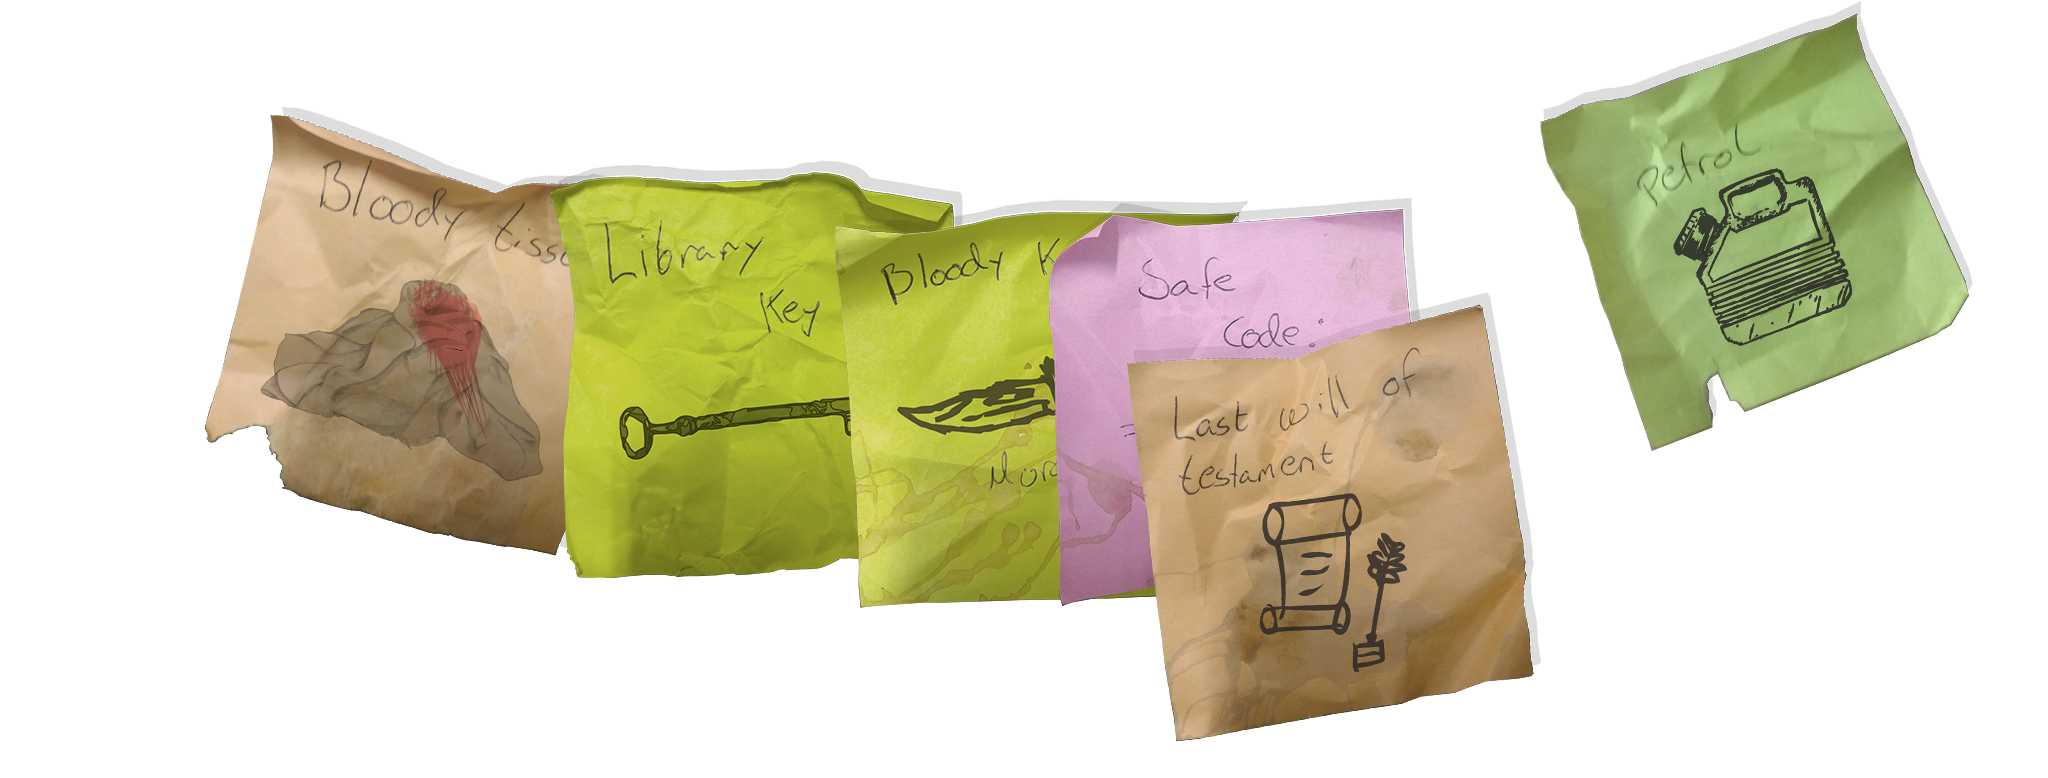 Bloody tiss
Library
Key
Bloody K
Mor
Safe
Code:
=
Last will of
testament
Petrol